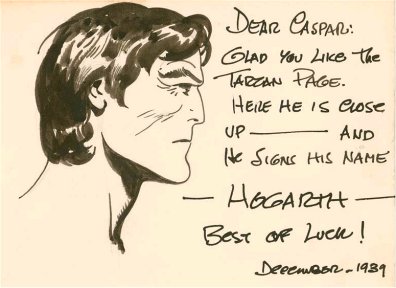 DEAR CASPAR:
GLAD YOU LIKE THE
TARZAN PAGE.
HERE HE IS CLOSE
UP — AND
HE SIGNS HIS NAME
— HOGARTH —
BEST OF LUCK!
DECEMBER - 1939